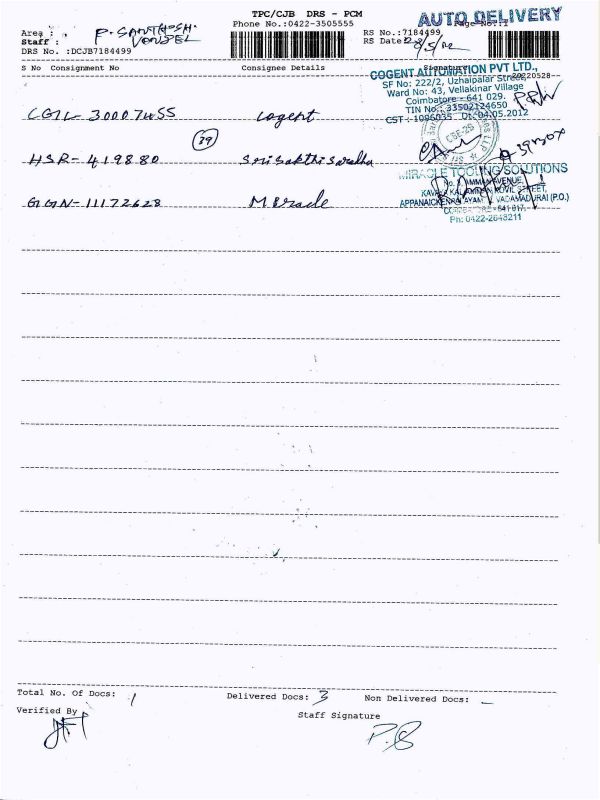 TPC/CJB DRS - PCM
AUTO DELIVERY
Phone No.:0422-3505555
Page No.:1
Area : P. SANTHOSH.
Staff :
RS No.:7184499
DRS No. :DCJB7184499
RS Date: 28/5/22
S No Consignment No Consignee Details Signature
20220528
COGENT AUTOMATION PVT LTD.,
SF No: 222/2, Uzhaipalar Street,
Ward No: 43, Vellakinar Village
Coimbatore - 641 029.
TIN No: 33502124650
CST : 1096035 Dt: 04.05.2012
CGIL-30007455 Cogent
39
HSR-419880 Sri Sakthi Saradha
MIRACLE TOOLING SOLUTIONS
GGN-11172628 Miracle
APPANAICKENPALAYAM, VADAMADURAI (P.O.)
COIMBATORE - 641 017.
Ph: 0422-2648211
Total No. Of Docs: 1 Delivered Docs: 3 Non Delivered Docs: -
Verified By
Staff Signature
P.S